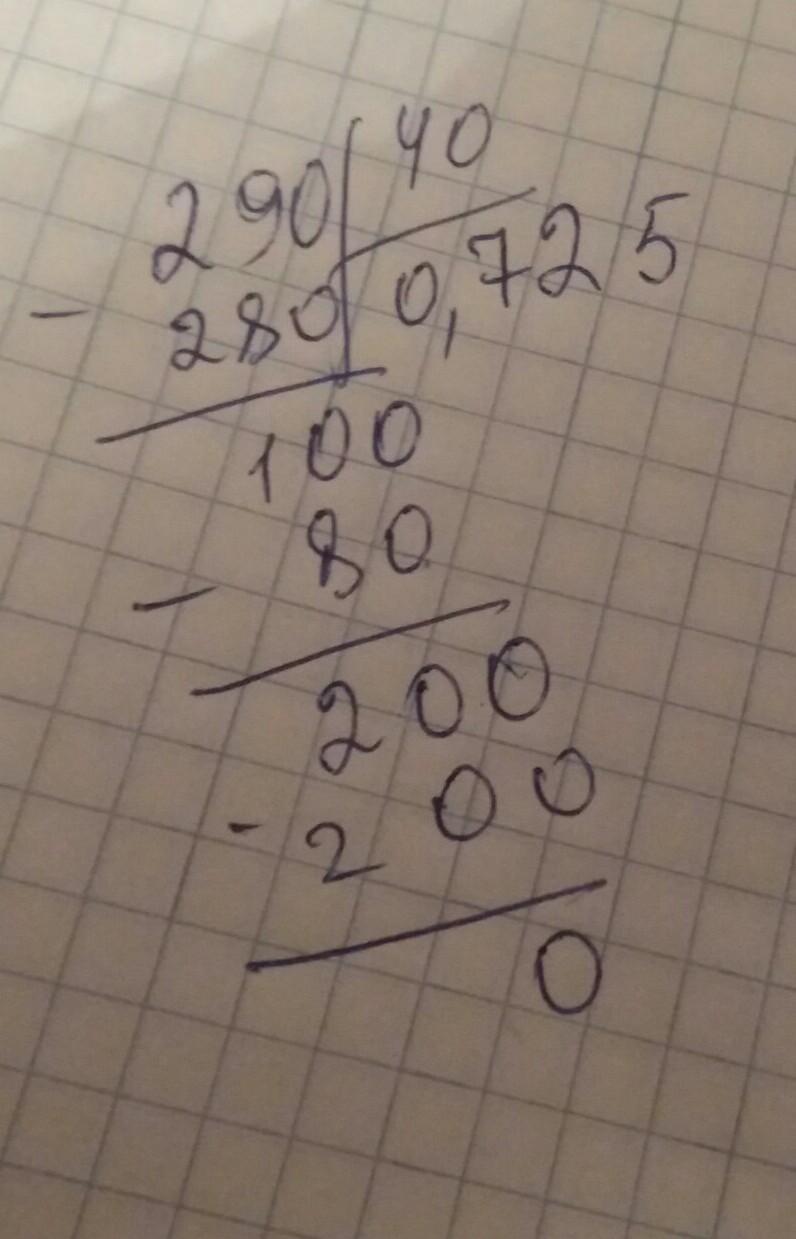 290 40
- 280 0,725
100
- 80
200
- 200
0